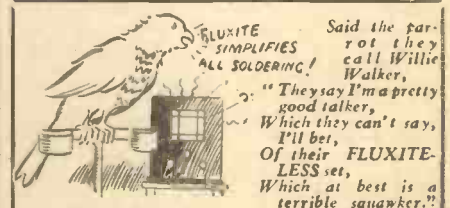 FLUXITE
SIMPLIFIES
ALL SOLDERING!
Said the par-
rot they
call Willie
Walker,
"They say I'm a pretty
good talker,
Which they can't say,
I'll bet,
Of their FLUXITE-
LESS set,
Which at best is a
terrible squawker."